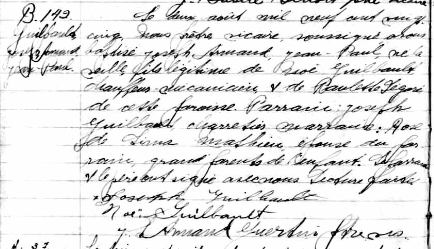 B. 143
Guilbault
Joseph Armand
Jean-Paul
Le deux août mil neuf cent vingt
cinq, nous prêtre vicaire, soussigné avons
baptisé Joseph, Armand, Jean-Paul né la
veille, fils légitime de Noé Guilbault
chauffeur mécanicien, & de Paulette
de cette paroisse. Parrain: Joseph
Guilbault, marraine: Rose
de Lima Mathieu, épouse du par
rain, grand parents de l'enfant. Le parrain
& le père ont signé avec nous. Lecture faite.
Joseph Guilbault
Noé Guilbault
J. Armand Guertin, ptre vic.